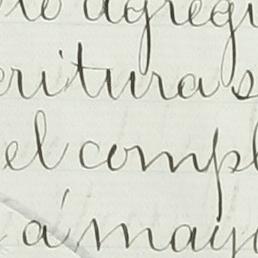 agreg
eritura s
el compl
á mayo